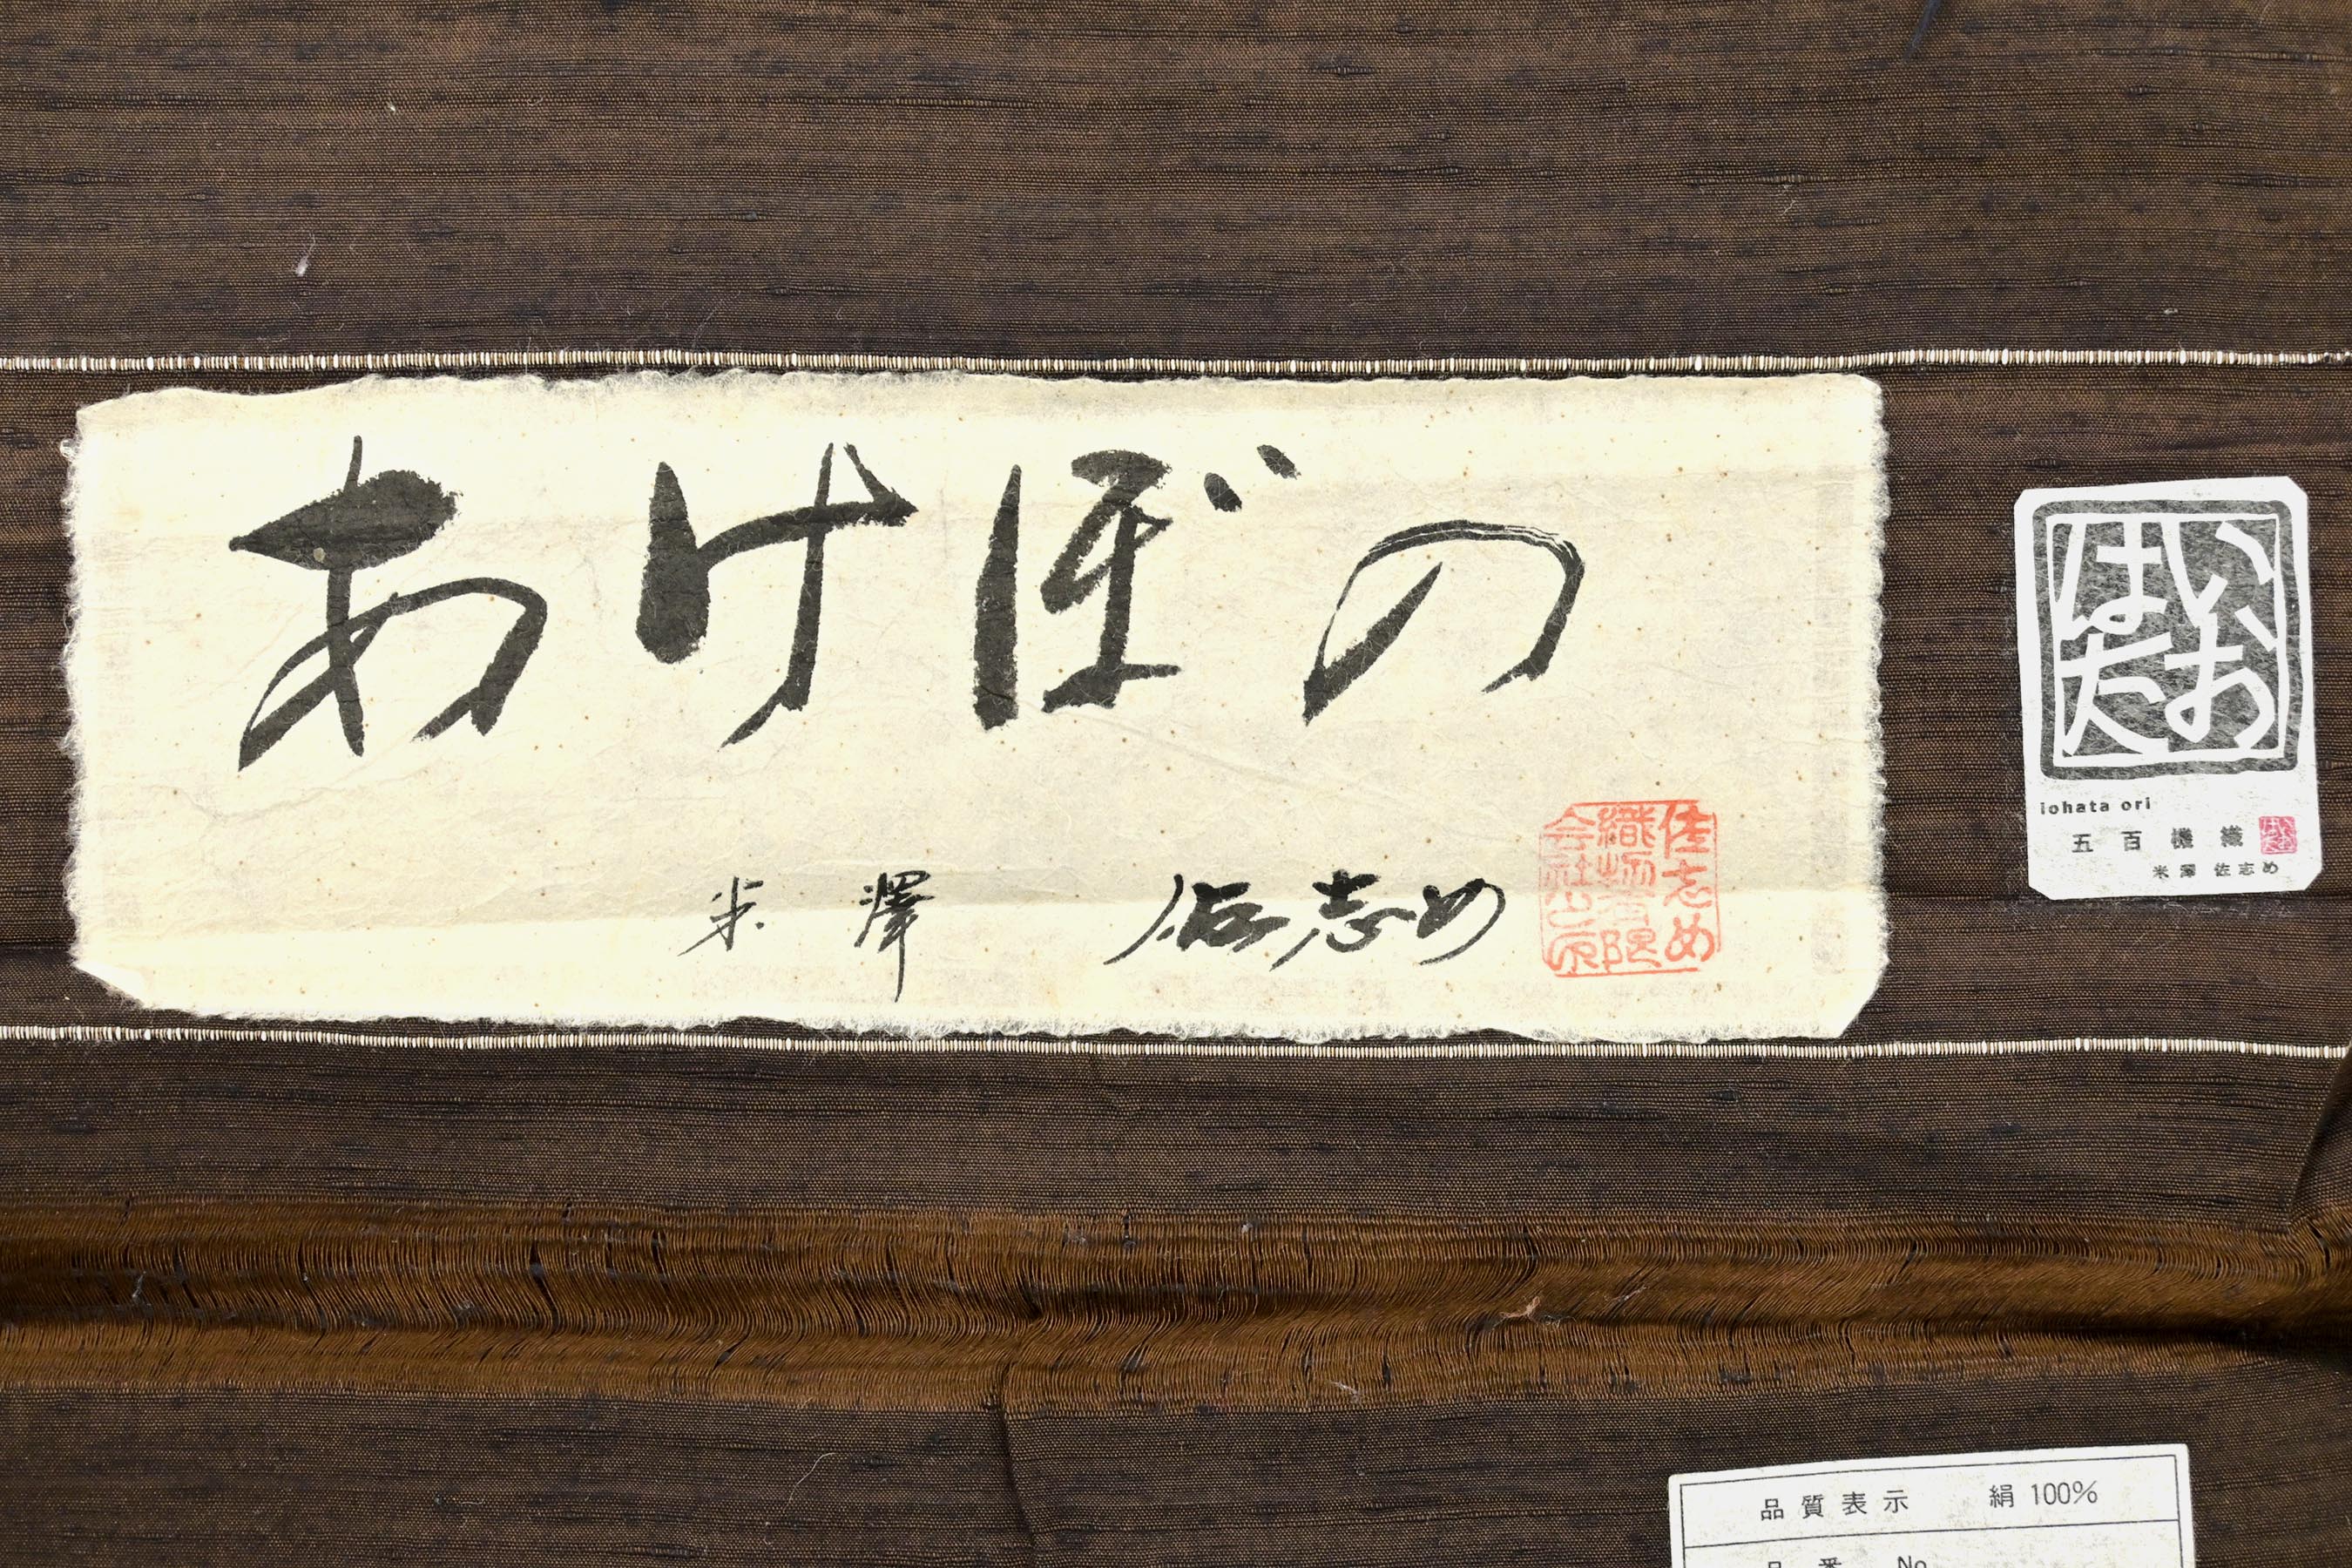 あけぼの
米澤 佐志め
佐志め
織物有限
会社之印
いお
はた
iohata ori
五百機織
米澤 佐志め
品質表示 絹 100%
品番 No